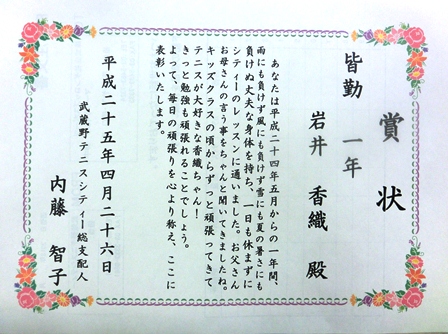 賞状
皆勤 一年
岩井 香織 殿
あなたは平成二十四年五月からの一年間、
雨にも負けず風にも負けず雪にも夏の暑さにも
負けぬ丈夫な身体を持ち、一日も休まずに
シティーのレッスンに通いました。お父さん
お母さんの言う事をちゃんと聞いてきましたね。
キッズクラスの頃からずっと頑張ってきて
テニスが大好きな香織ちゃん!
きっと勉強も頑張れることでしょう。
よって、毎日の頑張りを心より称え、ここに
表彰いたします。
平成二十五年四月二十六日
武蔵野テニスシティー総支配人
内藤 智子